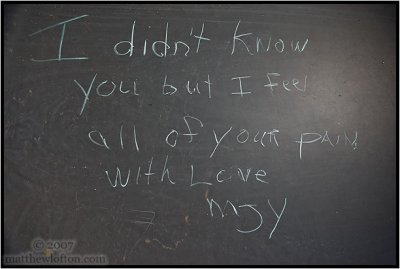 I didn't know
you but I feel
all of your PAIN
with Love
© 2007
matthewlofton.com